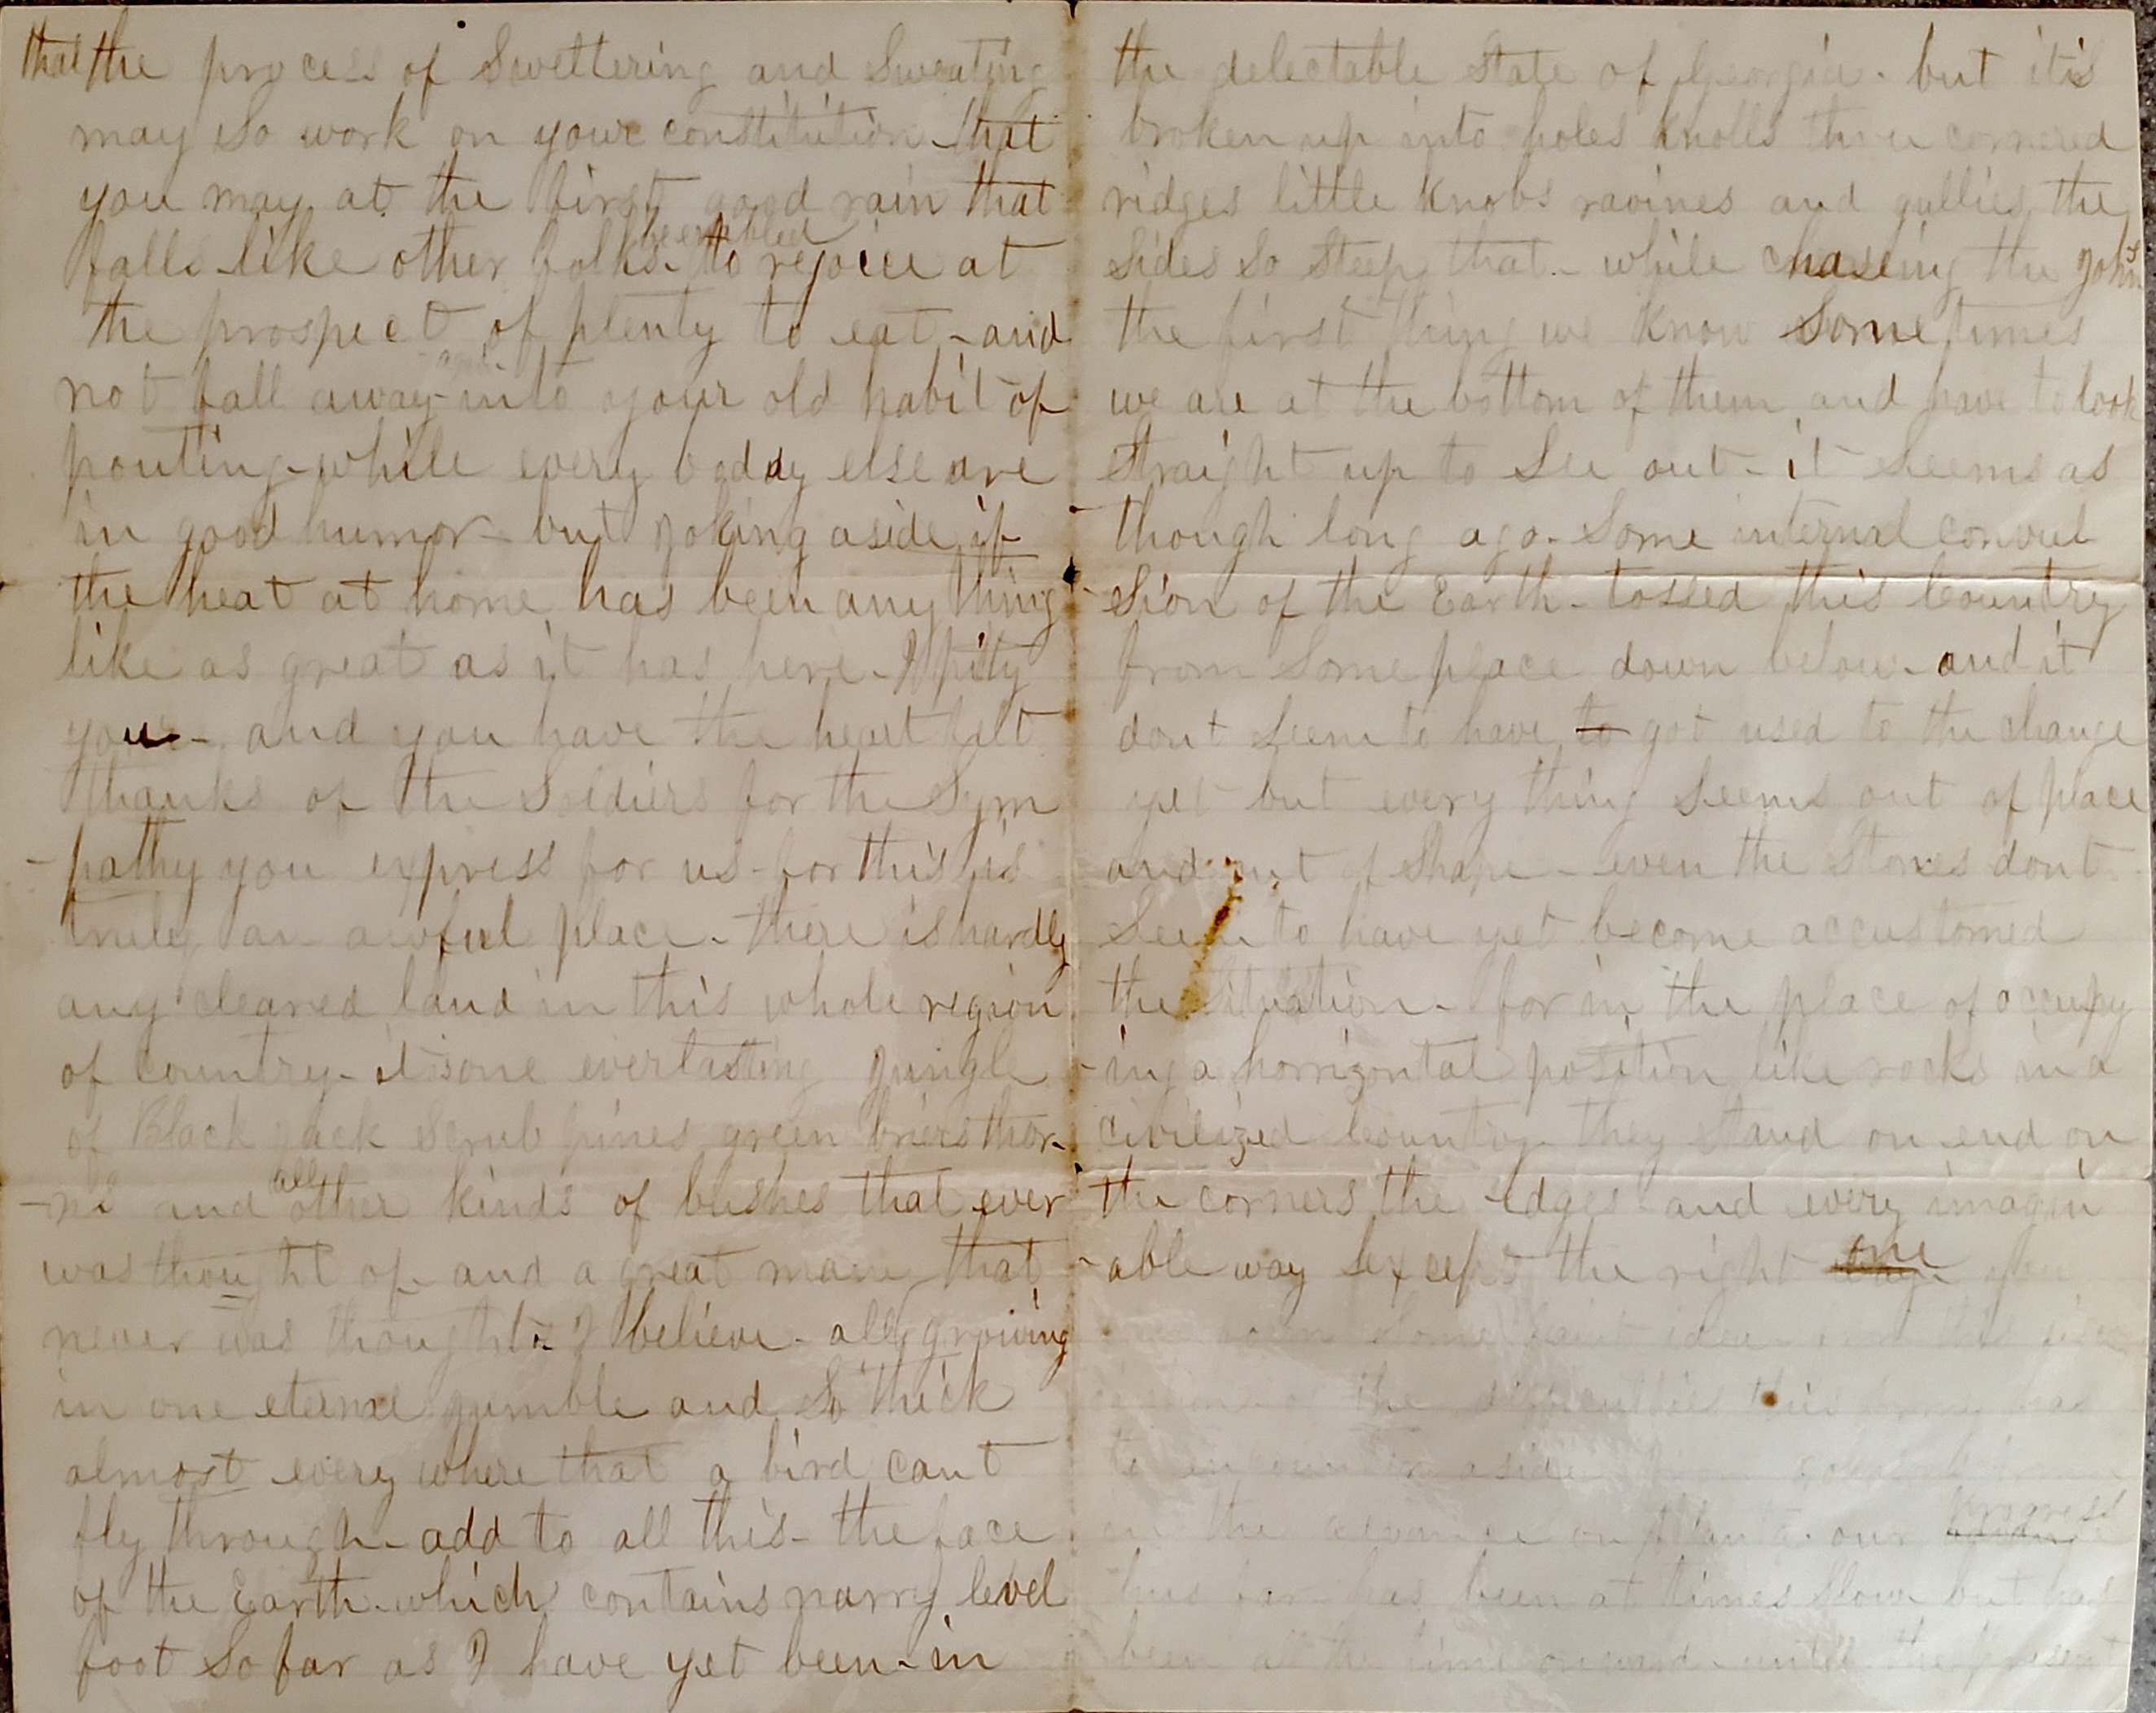 that the process of Sweltering and Sweating
may so work on your constitution - that
you may at the first good rain that
falls - like other folks - be enabled to rejoice at
the prospect of plenty to eat - and
not fall away into your old habit of
pouting - while every boddy else are
in good humor - but joking aside if
the heat at home has been any thing
like as great as it has here - I pity
you - and you have the heart felt
thanks of the Soldiers for the Sym
-pathy you express for us - for this is
truly an awful place - there is hardly
any cleared land in this whole region
of country - it is one everlasting jungle
of Black jack Scrub pines green briers thor-
-ns and all other kinds of bushes that ever
was thought of - and a great many that
never was thought I believe - all growing
in one eternal jumble and So thick
almost every where that a bird cant
fly through - add to all this - the face
of the Earth - which contains narry level
foot So far as I have yet been - in
the delectable State of Georgia - but it is
broken up into holes knolls three cornered
ridges little knobs ravines and gullies the
Sides So Steep that - while chaseing the Johns
the first thing we know Some times
we are at the bottom of them and have to look
Straight up to See out - it Seems as
though long ago - Some internal convul
-sion of the Earth - tossed this Country
from Some place down below - and it
dont Seem to have to got used to the change
yet but every thing Seems out of place
and out of Shape - even the Stones dont
Seem to have yet become accustomed
the Situation - for in the place of occupy
-ing a horrizontal position like rocks in a
civilized Country - they Stand on end on
the corners the edges and every imagin
-able way except the right one you
some faint idea from this
the difficulties this army has
to encounter aside from
in the advance on Atlanta - our progress
thus far has been at times Slow but has
been all the time onward - until the present